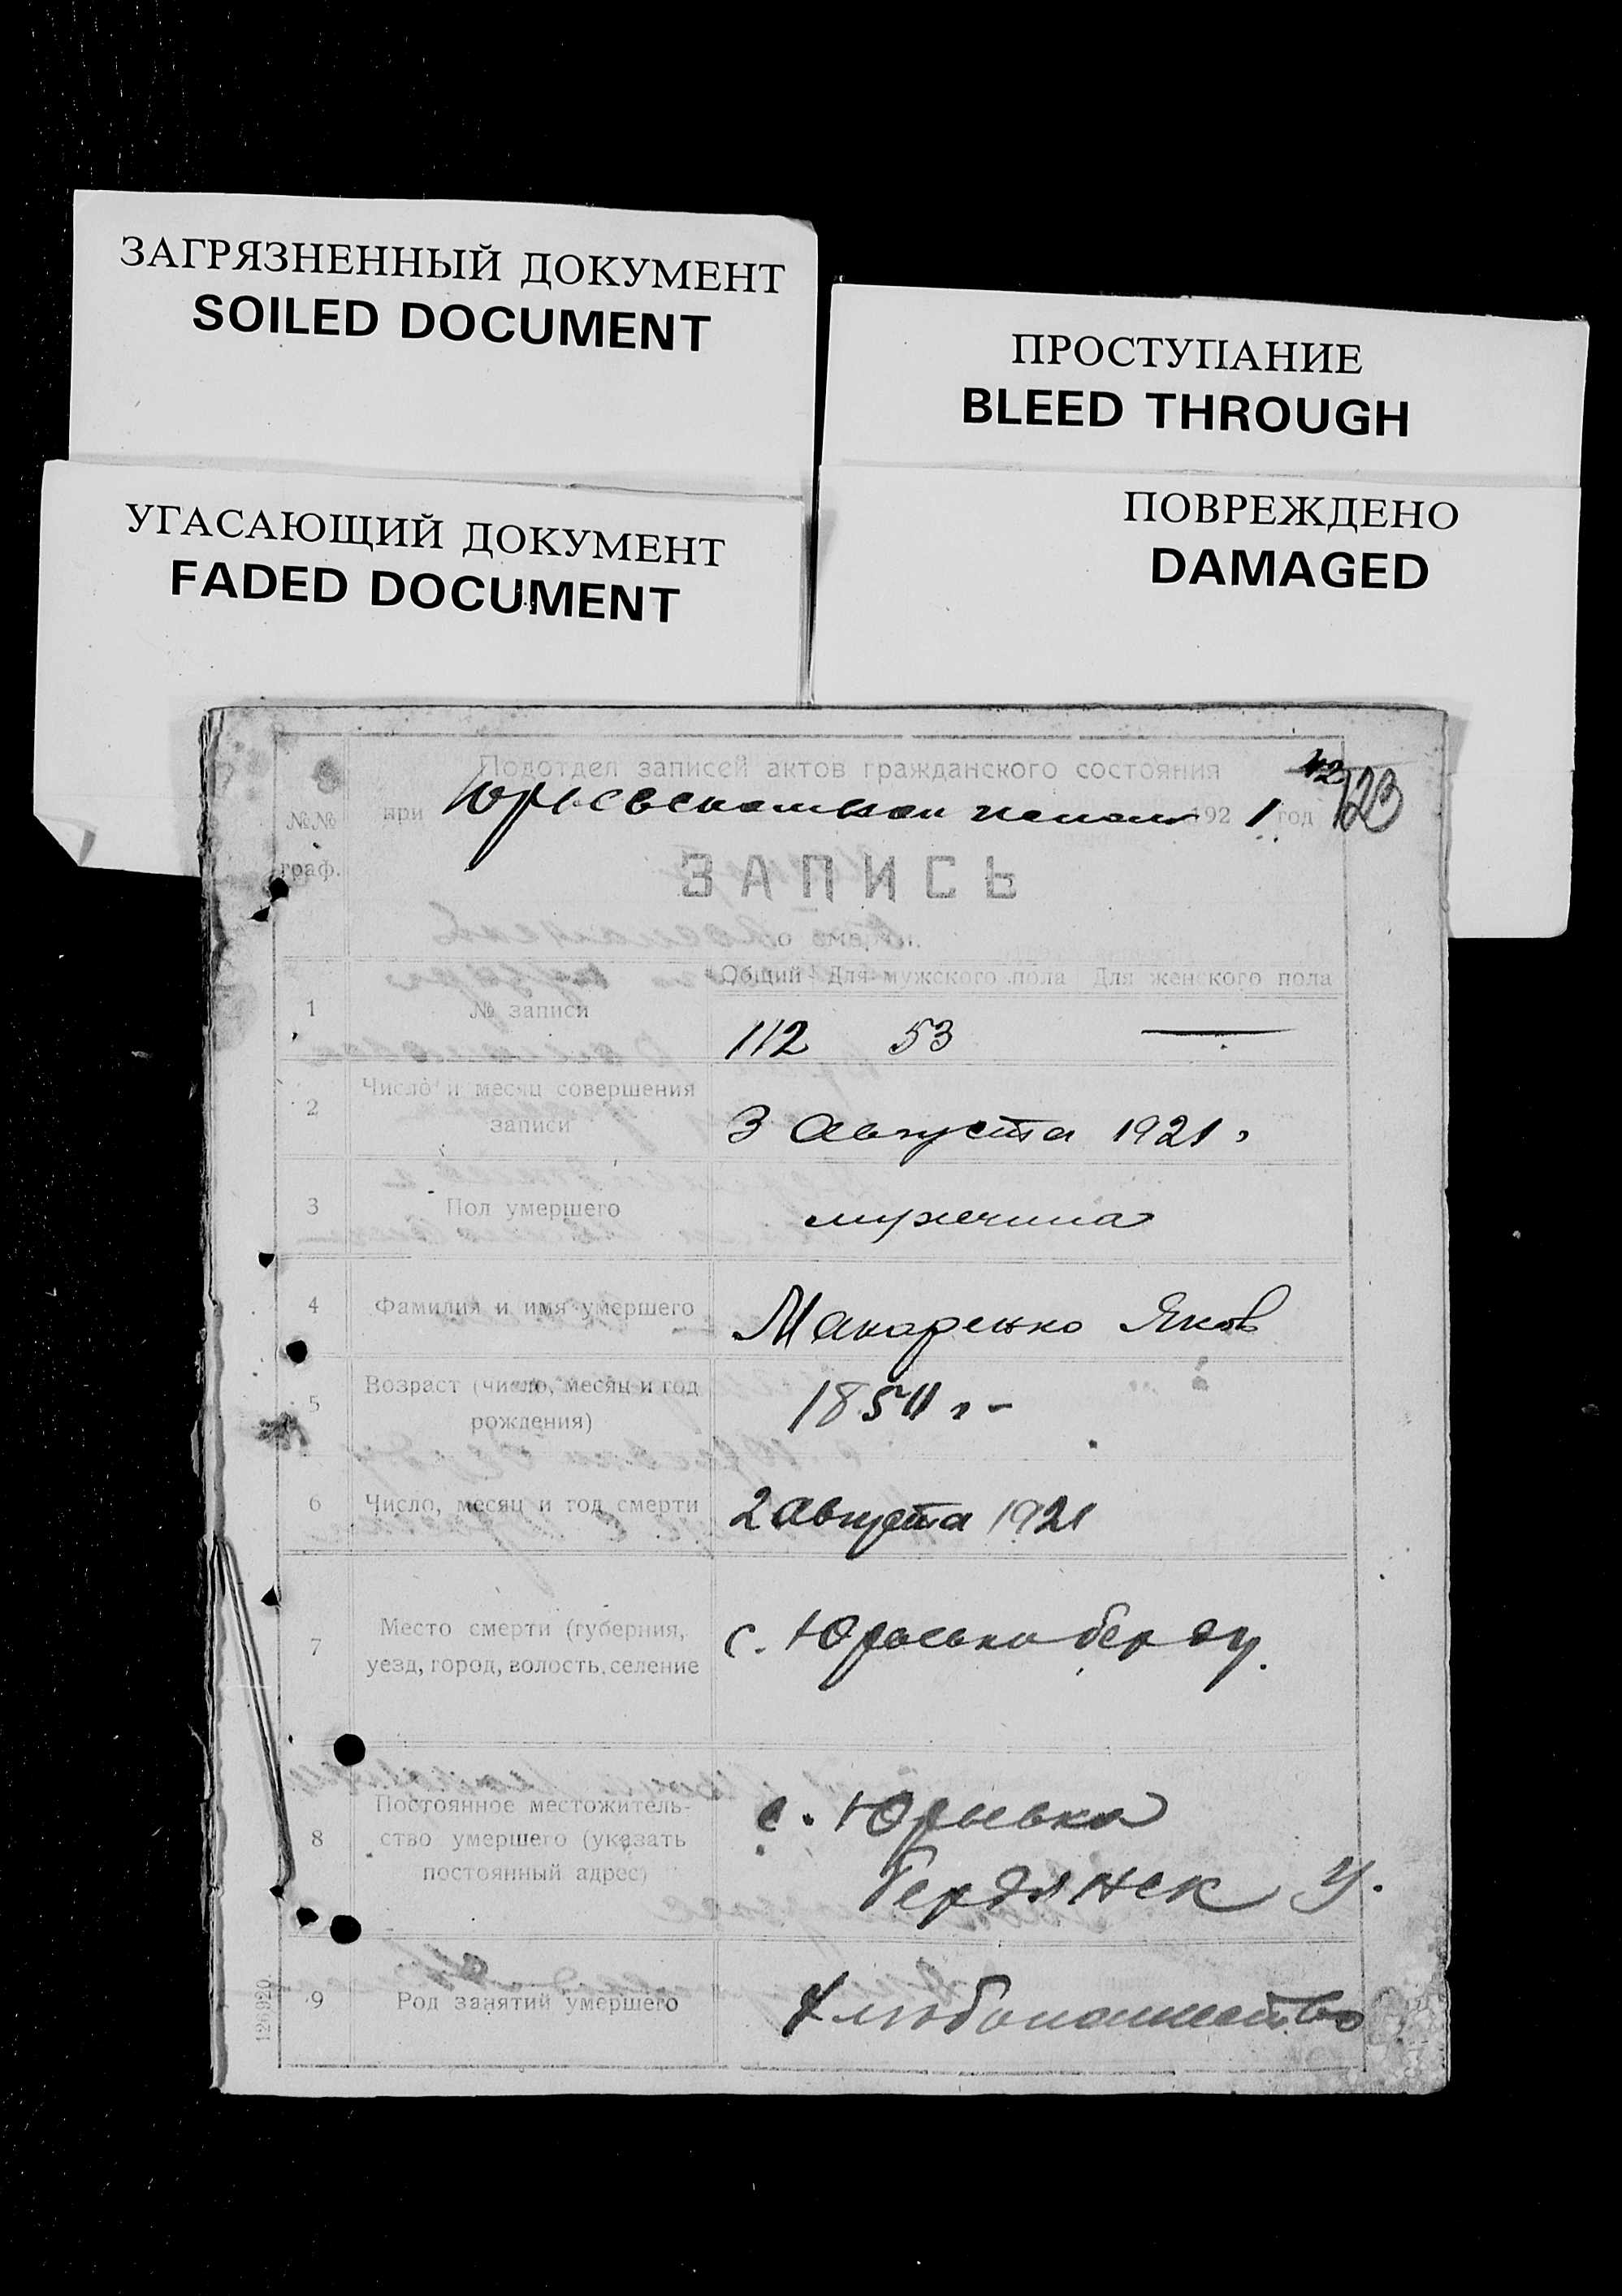 ЗАГРЯЗНЕННЫЙ ДОКУМЕНТ
SOILED DOCUMENT
ПРОСТУПАНИЕ
BLEED THROUGH
УГАСАЮЩИЙ ДОКУМЕНТ
FADED DOCUMENT
ПОВРЕЖДЕНО
DAMAGED
Подотдел записей актов гражданского состояния
123
№№ граф.
при 1921 год
ЗАПИСЬ
о смерти.
Общий Для мужского пола Для женского пола
1 № записи 112 53 —
2 Число и месяц совершения
записи 3 Августа 1921 г
3 Пол умершего мужчина
4 Фамилия и имя умершего Макаренко Яков
5 Возраст (число, месяц и год
рождения) 1854 г. -
6 Число, месяц и год смерти 2 августа 1921
7 Место смерти (губерния,
уезд, город, волость, селение с. Юрьевка берд у.
8 Постоянное местожитель-
ство умершего (указать
постоянный адрес) с. Юрьевка
Бердянск у.
9 Род занятий умершего
126920